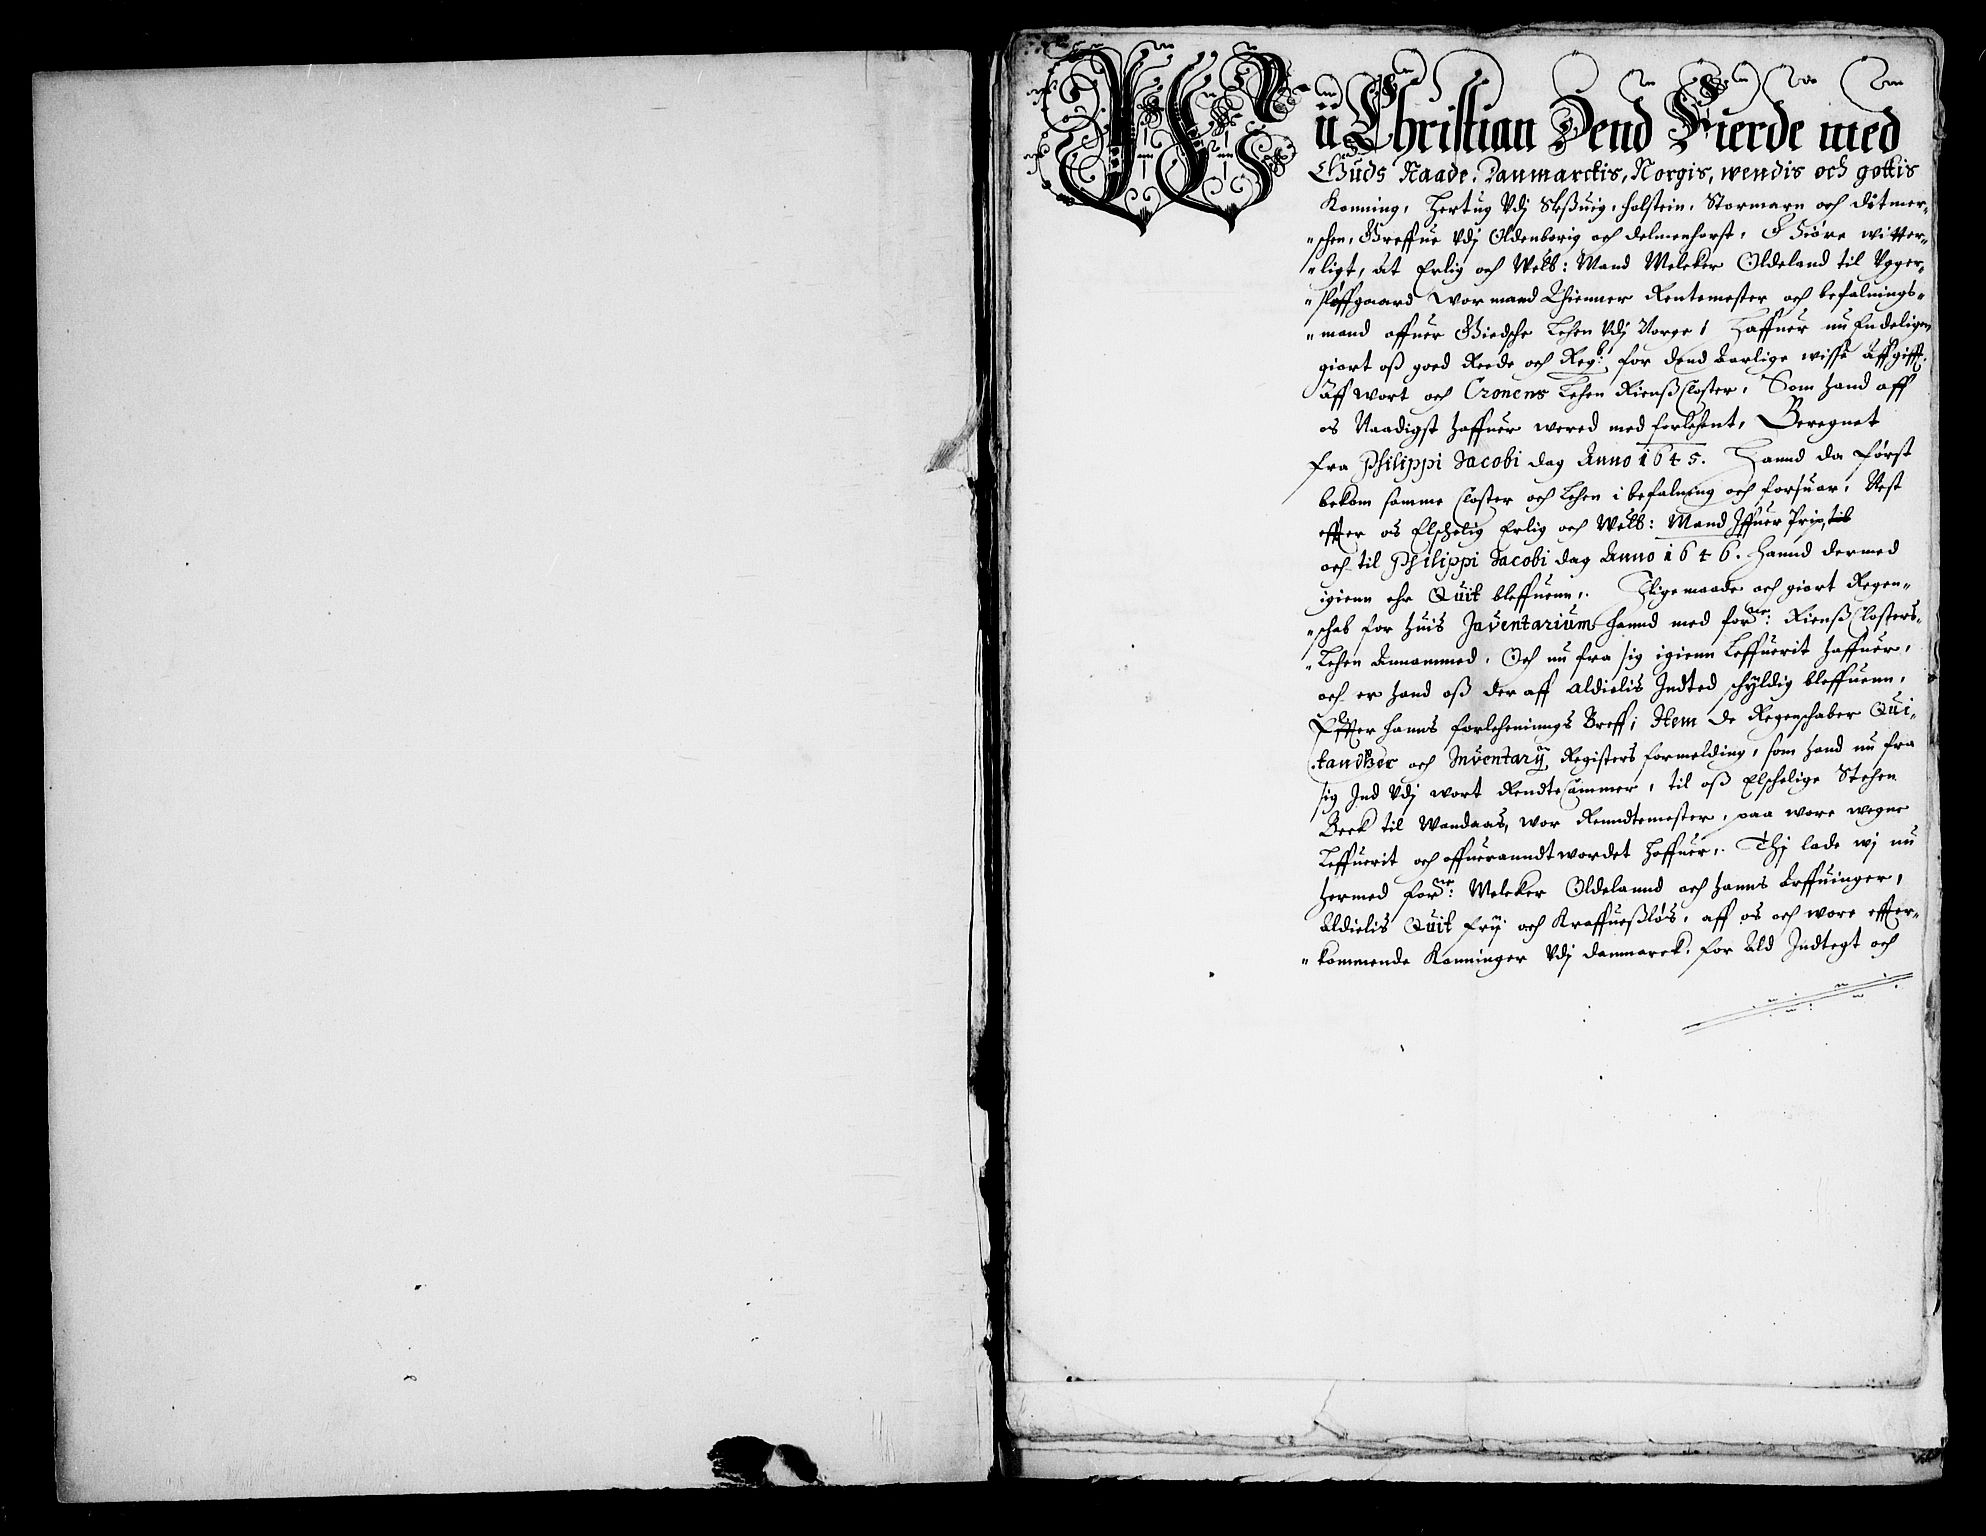 Wii Christian Dend Fierde med
Guds Naade, Danmarckis, Norgis, wendis och gottis
Konning, Hertug Vdj Sleßuig, Holstein, Stormarn och ditmer-
"schen, Greffue Vdj Oldenborig och delmenhorst, Giöre witter-
"ligt, at Erlig och Welb: Mand Melcker Oldeland til Vgger-
"sløffgaard wor mand Thienner Rentemester och befalnings-
"mand offuer Giedsche Lehen Vdj Norge, Haffuer nu Endeligen
giort oß goed Reede och Regb: for dend Aarlige wisse Affgifft
Aff wort och Cronens Lehen Rienß Closter, Som hand aff
os Naadigst haffuer wered med forlehent, Beregnet
fra Philippi Jacobi dag Anno 1645. Hannd da først
bekom samme Closter och Lehen i befalning och forsuar, Nest
effter os Elschelig Erlig och Welb: Mand Iffuer Prip, til
och til Philippi Jacobi dag Anno 1646. Hannd dermed
igienn ehr Quit bleffuenn, Jligemaade och giort Regen-
"schab for huis Inventarium hannd med forne: Rienß Closters
"Lehen Annammed, Och nu fra sig igienn Leffuerit haffuer,
och er hand oß der aff aldielis Indted schyldig bleffuenn,
Effter hanns forlehennings Breff, Item de Regenschaber Qui-
tandtzer och Inventarij Registers formelding, som hand nu fra
sig Ind Vdj wort Rendte Cammer, til oß Elschelige Stehen
Beck til Wandaas, wor Renndtemester, paa wore wegne
Leffuerit och offueranndtwordet haffuer, Thj lade wj nu
hermed forne: Melcker Oldelannd och hanns Arffuinger,
Aldielis Quit frij och Kraffuesløs, aff os och wore effter-
"kommende Konninger Vdj danmarck, for Ald Indtegt och